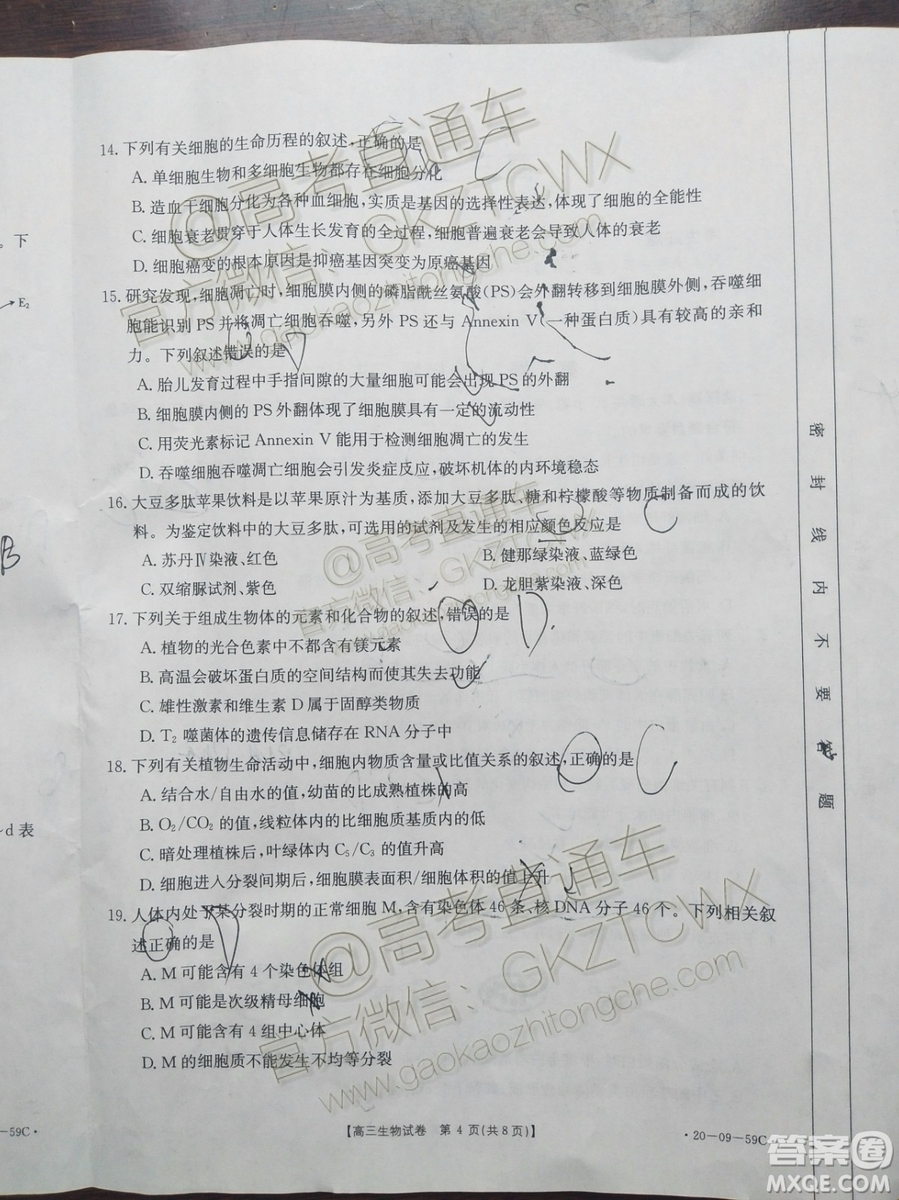 14. 下列有关细胞的生命历程的叙述,正确的是
A. 单细胞生物和多细胞生物都存在细胞分化
B. 造血干细胞分化为各种血细胞,实质是基因的选择性表达,体现了细胞的全能性
C. 细胞衰老贯穿于人体生长发育的全过程,细胞普遍衰老会导致人体的衰老
D. 细胞癌变的根本原因是抑癌基因突变为原癌基因
15. 研究发现,细胞凋亡时,细胞膜内侧的磷脂酰丝氨酸(PS)会外翻转移到细胞膜外侧,吞噬细
胞能识别 PS 并将凋亡细胞吞噬,另外 PS 还与 Annexin V(一种蛋白质)具有较高的亲和
力。下列叙述错误的是
A. 胎儿发育过程中手指间隙的大量细胞可能会出现 PS 的外翻
B. 细胞膜内侧的 PS 外翻体现了细胞膜具有一定的流动性
C. 用荧光素标记 Annexin V 能用于检测细胞凋亡的发生
D. 吞噬细胞吞噬凋亡细胞会引发炎症反应,破坏机体的内环境稳态
16. 大豆多肽苹果饮料是以苹果原汁为基质,添加大豆多肽、糖和柠檬酸等物质制备而成的饮
料。为鉴定饮料中的大豆多肽,可选用的试剂及发生的相应颜色反应是
A. 苏丹Ⅳ染液、红色 B. 健那绿染液、蓝绿色
C. 双缩脲试剂、紫色 D. 龙胆紫染液、深色
17. 下列关于组成生物体的元素和化合物的叙述,错误的是
A. 植物的光合色素中不都含有镁元素
B. 高温会破坏蛋白质的空间结构而使其失去功能
C. 雄性激素和维生素 D 属于固醇类物质
D. T₂ 噬菌体的遗传信息储存在 RNA 分子中
18. 下列有关植物生命活动中,细胞内物质含量或比值关系的叙述,正确的是
A. 结合水/自由水的值,幼苗的比成熟植株的高
B. O₂/CO₂ 的值,线粒体内的比细胞质基质内的低
C. 暗处理植株后,叶绿体内 C₅/C₃ 的值升高
D. 细胞进入分裂间期后,细胞膜表面积/细胞体积的值上升
19. 人体内处于某分裂时期的正常细胞 M,含有染色体 46 条、核 DNA 分子 46 个。下列相关叙
述正确的是
A. M 可能含有 4 个染色体组
B. M 可能是次级精母细胞
C. M 可能含有 4 组中心体
D. M 的细胞质不能发生不均等分裂
【高三生物试卷 第 4 页(共 8 页)】
·20-09-59C·
-59C·
。下
→E₂
B
~d 表
密封线内不要答题
C
D
C
D
C
D
@高考直通车
官方微信:GKZTCWX
www.gaokaozhitongche.com
@高考直通车
官方微信:GKZTCWX
www.gaokaozhitongche.com
@高考直通车
官方微信:GKZTCWX
www.gaokaozhitongche.com
答案圈
MXQE.COM